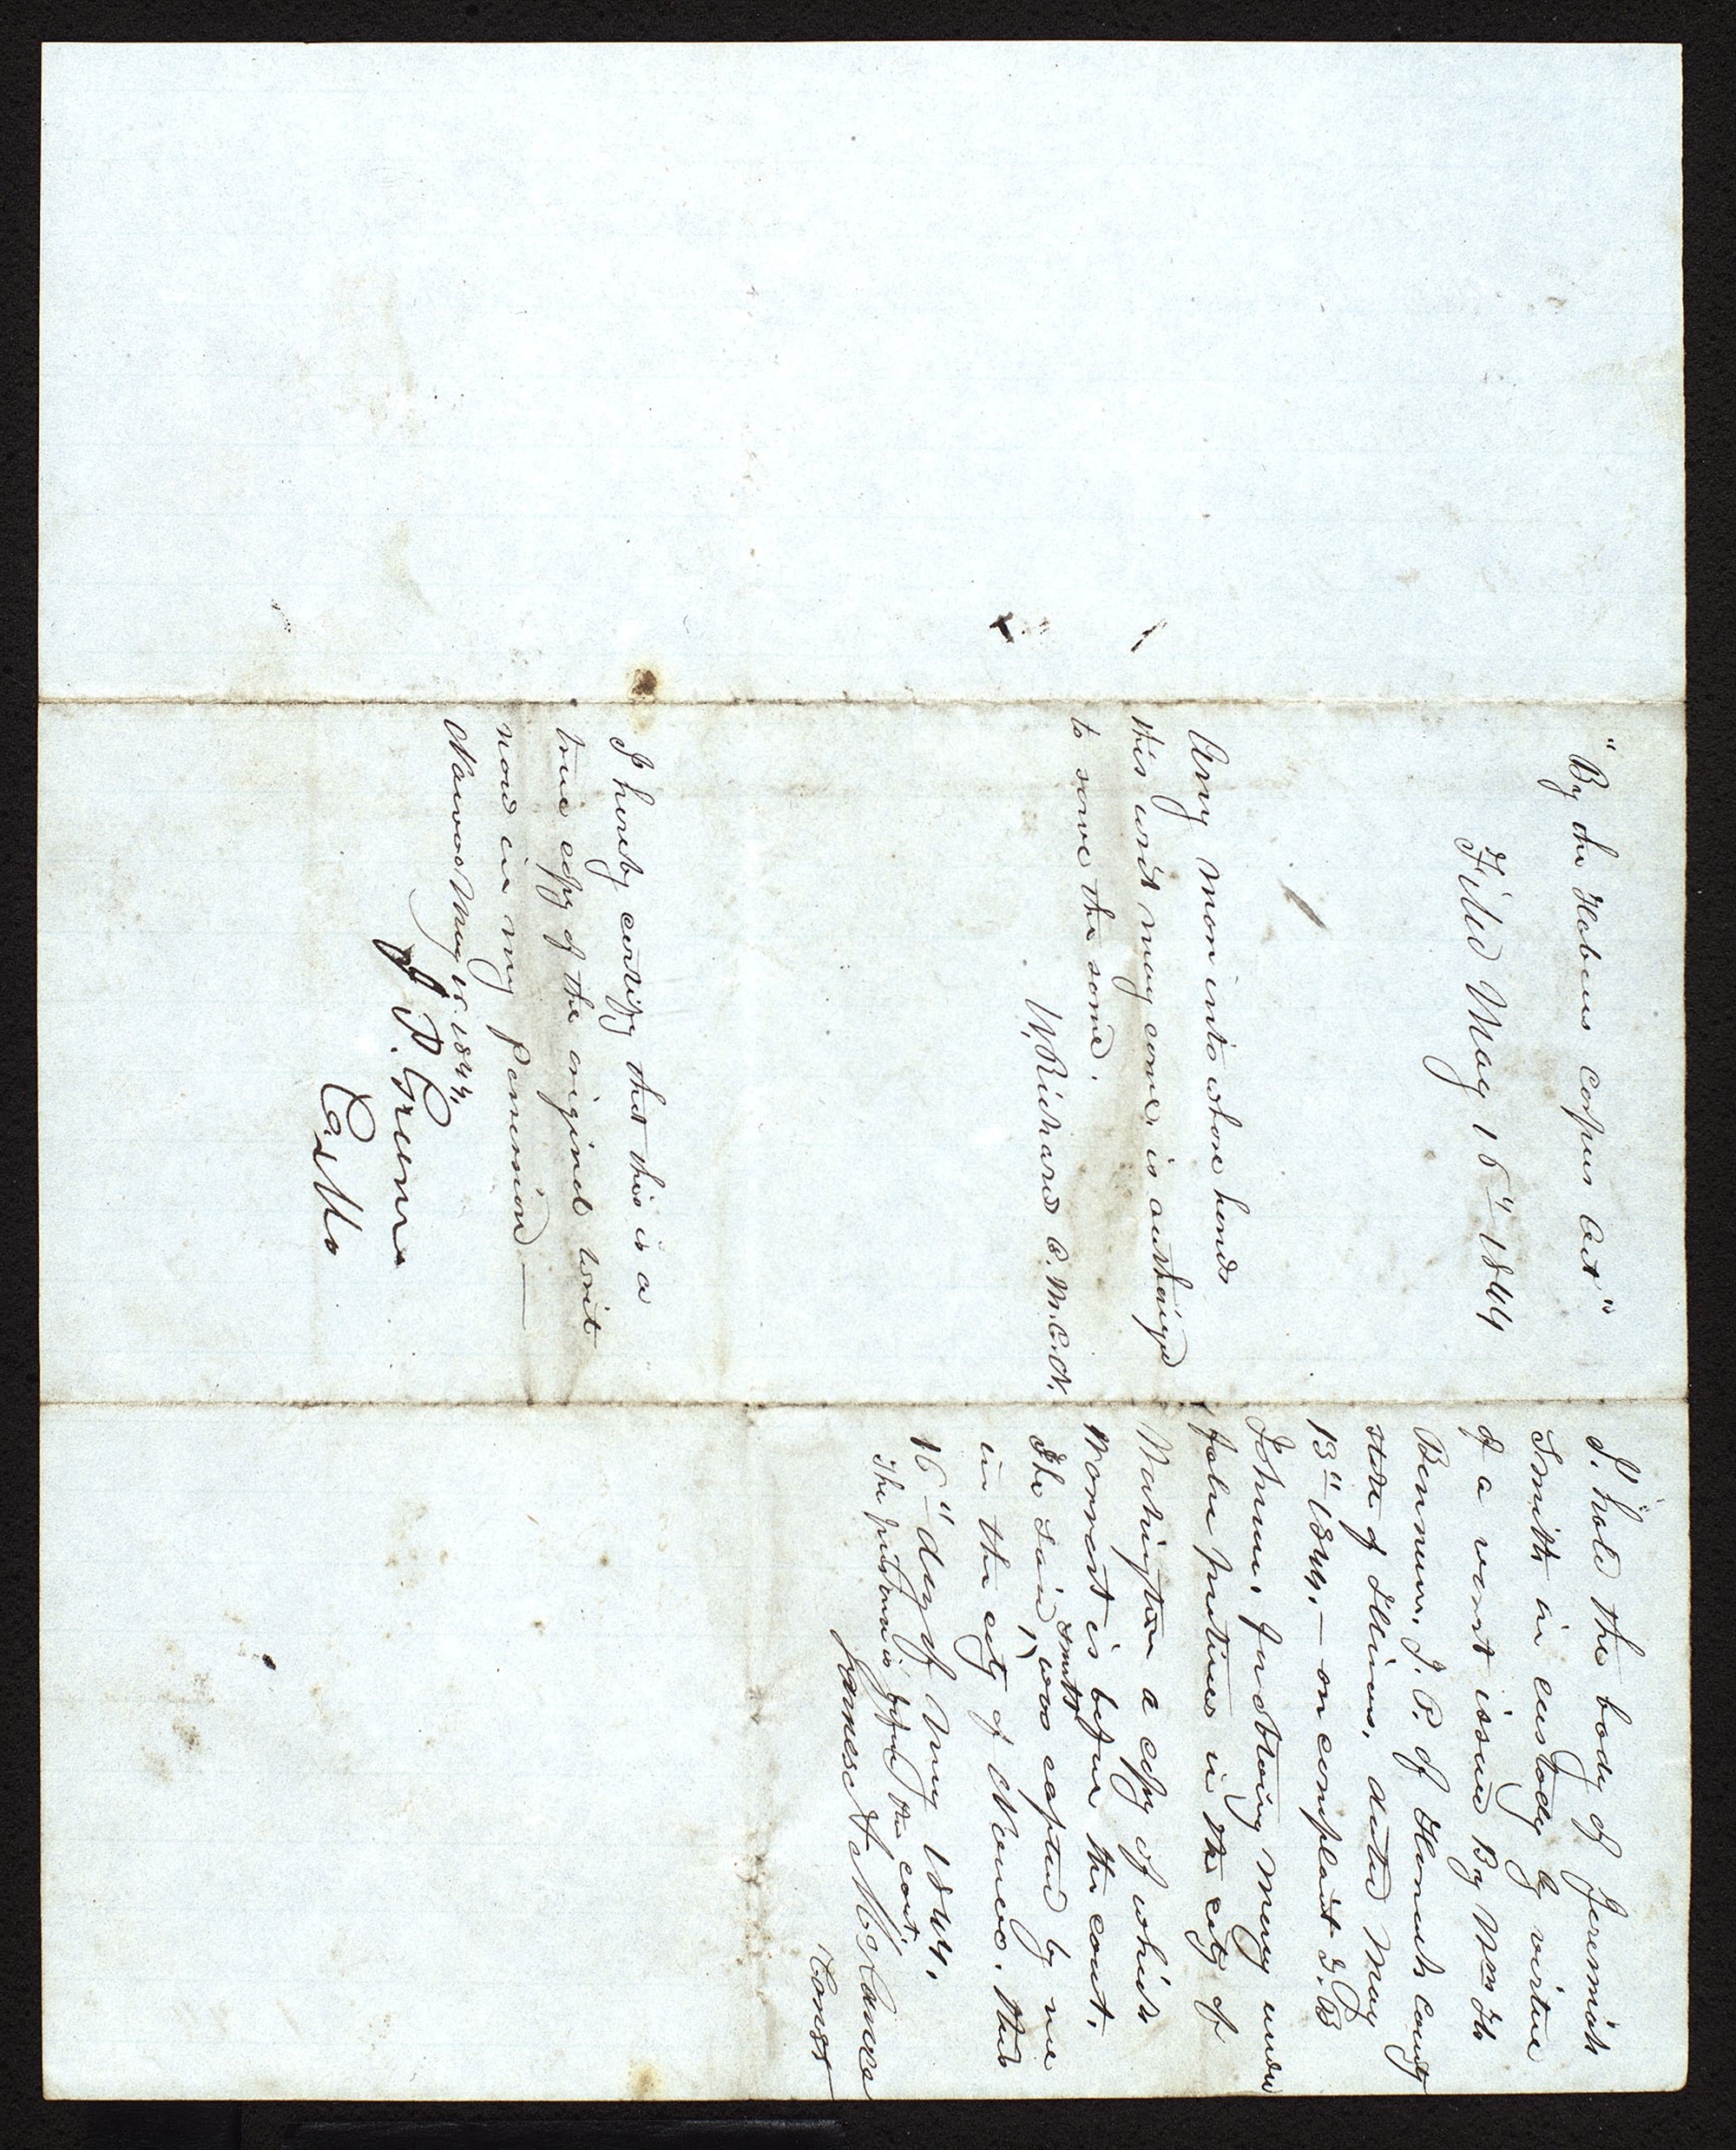 "By the Habeus corpus Act"
Filed May 16" 1844
Any man into whose hands
this writ may come, is authorized
to serve the same.
W. Richards C. M. C. N.
I hereby certify that this is a
true copy of the original writ
now in my possession —
Nauvoo May 1844,
J. P. Green
I "hold the body of Jeremiah
Smith in custody by virtue
of a writ issued By Wm
Bennum, J. P. of Hancock county
state of Illinois, dated May
13" 1844, — on complaint T. B
Johnson, for obtaing mony under
false pretences in the city of
Washington a copy of which
warrant is before the court,
The said, Smith was captured by me
in the city of Nauvoo, this
16" day of May 1844,
The prisoner is before the court
Const